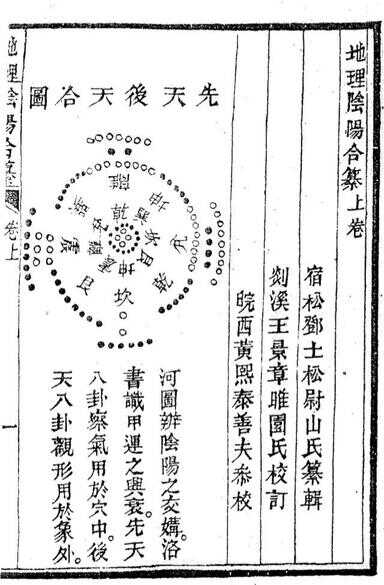 地理陰陽合纂上卷
宿松鄧士松尉山氏纂輯
剡溪王景章雅園氏校訂
皖西黃熙泰善夫叅校
先天後天合圖
離
坤
兌
乾
坎
艮
震
坎
艮
坤
河圖辨陰陽之交媾。洛
書識甲運之興衰。先天
八卦察氣用於穴中。後
天八卦觀形用於象外。
地理陰陽合纂
卷上
一